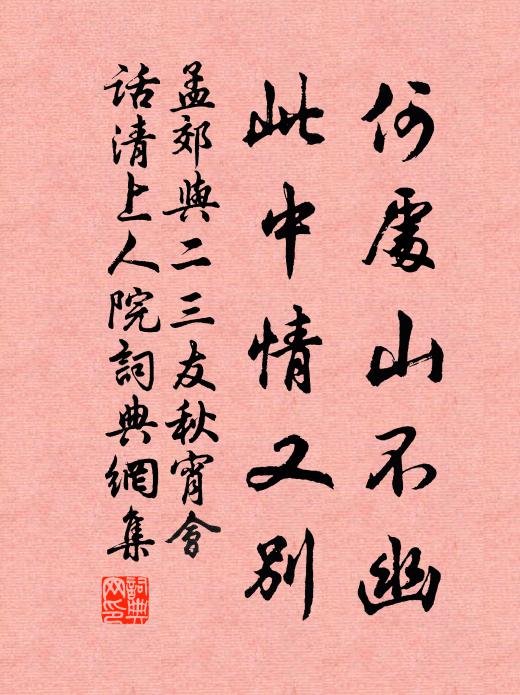 何處山不幽
此中情又別
孟郊與二三友秋宵會
話清上人院詞典網集
詞典
网印